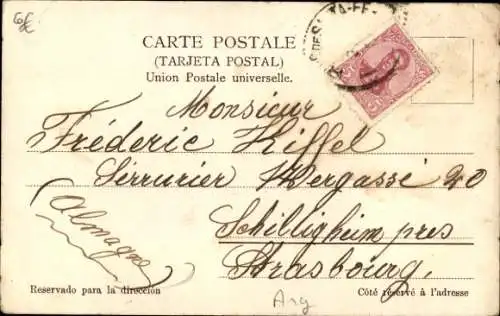 CARTE POSTALE
(TARJETA POSTAL)
Union Postale universelle.
Monsieur
Fréderic Kiffel
Serrurier Hergassé 20
Schilligheim pres
Strasbourg.
Almagne
Reservado para la dirección
Côté réservé à l'adresse
Arg